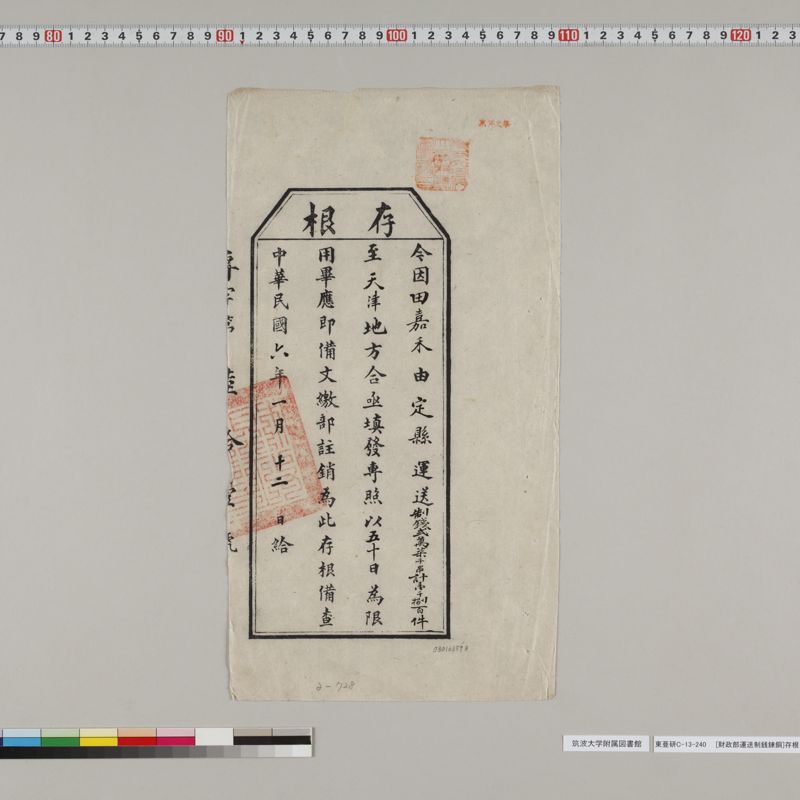 7 8 9 80 1 2 3 4 5 6 7 8 9 90 1 2 3 4 5 6 7 8 9 100 1 2 3 4 5 6 7 8 9 110 1 2 3 4 5 6 7 8 9 120 1 2 3
存根
今因田嘉禾由定縣運送制錢弍萬柒千串計壹千捌百件
至天津地方合亟填發專照以五十日為限
用畢應即備文繳部註銷為此存根備查
中華民國六年一月十二日給
字第陸拾壹號
2-728
筑波大学附属図書館
東亜研C-13-240 [財政部運送制銭錬銅]存根